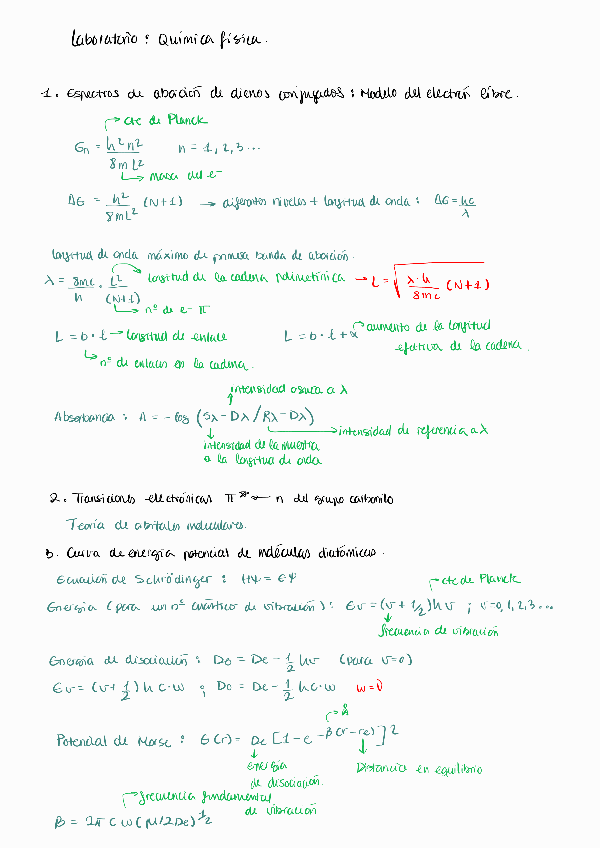 Laboratorio: Química física.
1. Espectros de absorción de dienos conjugados: Modelo del electrón libre.
cte de Planck
En = h²n² / 8mL²   n = 1, 2, 3...
masa del e⁻
ΔE = h² / 8mL² (N+1) → diferentes niveles + longitud de onda: ΔE = hc / λ
longitud de onda máximo de primera banda de absorción.
λ = 8mc / h · L² / (N+1)   longitud de la cadena polimetínica → L = √( λ·h / 8mc (N+1) )
nº de e⁻ π
L = b·l → longitud de enlace   L = b·l + α → aumento de la longitud efectiva de la cadena.
nº de enlaces en la cadena.
intensidad oscura a λ
Absorbancia: A = -log (Sλ - Dλ / Rλ - Dλ)
intensidad de referencia a λ
intensidad de la muestra
a la longitud de onda
2. Transiciones electrónicas π* ← n del grupo carbonilo
Teoría de orbitales moleculares.
3. Curva de energía potencial de moléculas diatómicas.
Ecuación de Schrödinger: Hψ = Eψ
cte de Planck
Energía (para un nº cuántico de vibración): Ev = (v + 1/2) h ν ; v = 0, 1, 2, 3...
frecuencia de vibración
Energía de disociación: D0 = De - 1/2 hν (para v=0)
Ev = (v + 1/2) h c·w ; D0 = De - 1/2 h c·w   w = ν̄
Potencial de Morse: E(r) = De [1 - e^-β(r-re)]²
energía de disociación.
Distancia en equilibrio
frecuencia fundamental
de vibración
β = 2π c w (μ/2De)^1/2